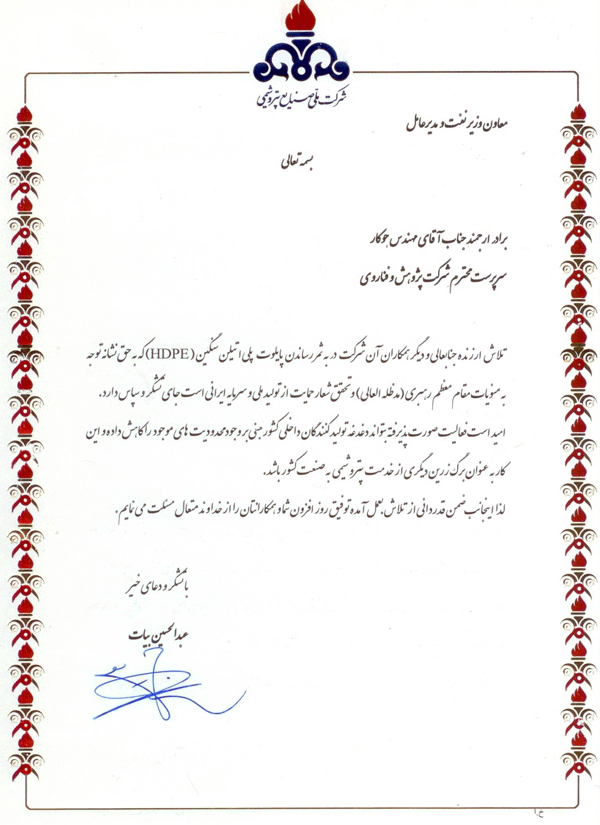 شرکت ملی صنایع پتروشیمی
معاون وزیر نفت و مدیرعامل
بسمه تعالی
برادر ارجمند جناب آقای مهندس جوکار
سرپرست محترم شرکت پژوهش و فناوری
تلاش ارزنده جنابعالی و دیگر همکاران آن شرکت در به ثمر رساندن پایلوت پلی اتیلن سنگین (HDPE) که به حق نشانه توجه
به منویات مقام معظم رهبری (مدظله العالی) و تحقق شعار حمایت از تولید ملی و سرمایه ایرانی است جای تشکر و سپاس دارد.
امید است فعالیت صورت پذیرفته بتواند دغدغه تولید کنندگان داخلی کشور مبنی بر وجود محدودیت های موجود را کاهش داده و این
کار به عنوان برگ زرین دیگری از خدمت پتروشیمی به صنعت کشور باشد.
لذا اینجانب ضمن قدردانی از تلاش بعمل آمده توفیق روز افزون شما و همکارانتان را از خداوند متعال مسئلت می نمایم.
با تشکر و دعای خیر
عبدالحسین بیات